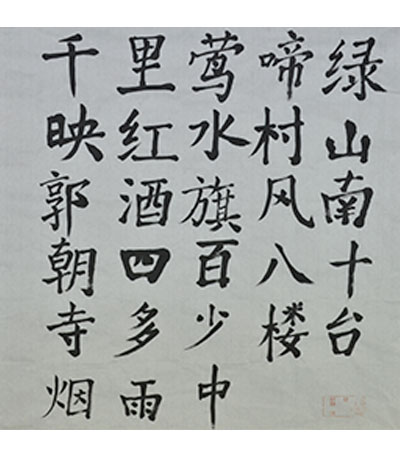 千里莺啼绿
映红水村山
郭酒旗风南
朝四百八十
寺多少楼台
烟雨中